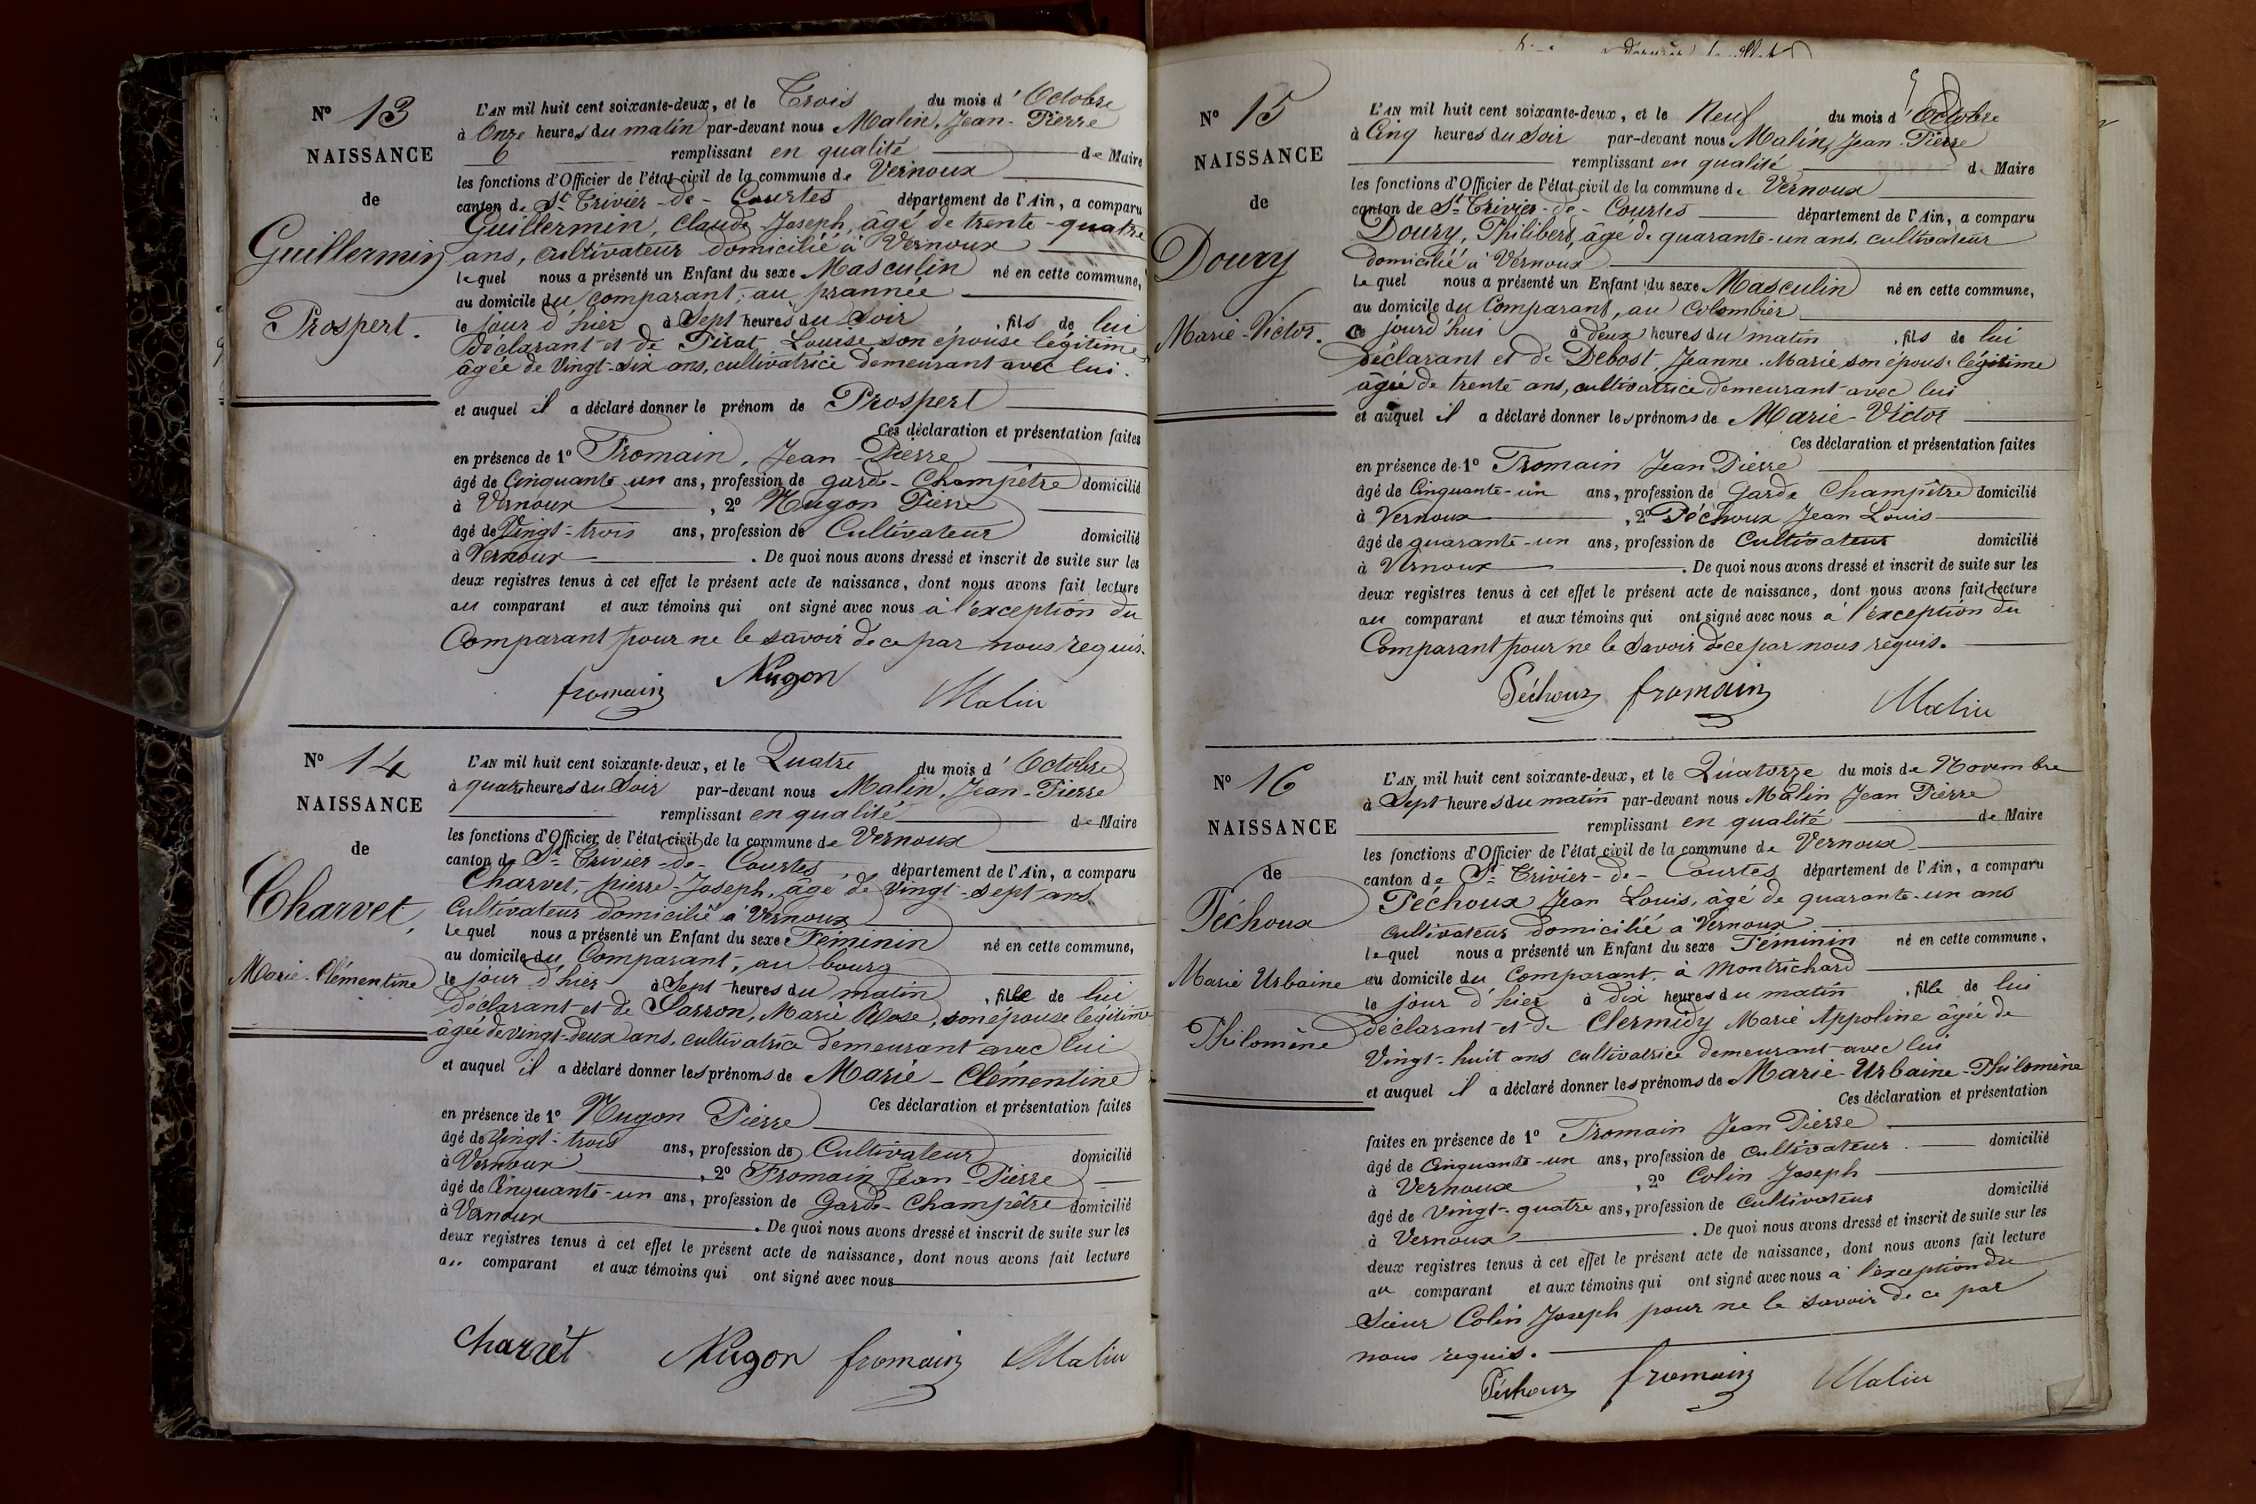 N° 13
NAISSANCE
de
Guillermin
Prospert.
L'AN mil huit cent soixante-deux, et le Trois du mois d'Octobre
à Onze heures du matin par-devant nous Malin, Jean-Pierre
remplissant en qualité de Maire
les fonctions d'Officier de l'état civil de la commune de Vernoux
canton de St Trivier-de-Courtes département de l'Ain, a comparu
Guillermin, Claude Joseph, âgé de trente-quatre
ans, cultivateur domicilié à Vernoux
lequel nous a présenté un Enfant du sexe Masculin né en cette commune,
au domicile du comparant, au prannée
le jour d'hier à Sept heures du Soir, fils de lui
Déclarant et de Pirat, Louise son épouse légitime
âgée de Vingt-six ans, cultivatrice demeurant avec lui.
et auquel il a déclaré donner le prénom de Prospert
Ces déclaration et présentation faites
en présence de 1° Fromain, Jean Pierre
âgé de Cinquante un ans, profession de garde-Champêtre domicilié
à Vernoux, 2° Nugon Pierre
âgé de Vingt-trois ans, profession de Cultivateur domicilié
à Vernoux. De quoi nous avons dressé et inscrit de suite sur les
deux registres tenus à cet effet le présent acte de naissance, dont nous avons fait lecture
au comparant et aux témoins qui ont signé avec nous à l'exception du
Comparant pour ne le savoir de ce par nous requis.
fromain Nugon Malin
N° 14
NAISSANCE
de
Charvet,
Marie-Clémentine
L'AN mil huit cent soixante-deux, et le Quatre du mois d'Octobre
à quatre heures du Soir par-devant nous Malin, Jean-Pierre
remplissant en qualité de Maire
les fonctions d'Officier de l'état civil de la commune de Vernoux
canton de St Trivier-de-Courtes, département de l'Ain, a comparu
Charvet, pierre-Joseph, âgé de Vingt-sept ans,
Cultivateur domicilié à Vernoux
lequel nous a présenté un Enfant du sexe Féminin né en cette commune,
au domicile du Comparant, au bourg
le jour d'hier à Sept heures du matin, fille de lui
Déclarant et de Sarron, Marie Rose, son épouse légitime
âgée de vingt-deux ans, cultivatrice demeurant avec lui
et auquel il a déclaré donner les prénoms de Marie-Clémentine
Ces déclaration et présentation faites
en présence de 1° Nugon Pierre
âgé de Vingt-trois ans, profession de Cultivateur domicilié
à Vernoux, 2° Fromain Jean-Pierre
âgé de Cinquante-un ans, profession de Garde-Champêtre domicilié
à Vernoux. De quoi nous avons dressé et inscrit de suite sur les
deux registres tenus à cet effet le présent acte de naissance, dont nous avons fait lecture
au comparant et aux témoins qui ont signé avec nous
Charvet Nugon fromain Malin
N° 15
NAISSANCE
de
Doury
Marie-Victor.
L'AN mil huit cent soixante-deux, et le Neuf du mois d'Octobre
à Cinq heures du Soir par-devant nous Malin, Jean-Pierre
remplissant en qualité de Maire
les fonctions d'Officier de l'état civil de la commune de Vernoux
canton de St Trivier-de-Courtes département de l'Ain, a comparu
Doury, Philibert, âgé de quarante-un ans, cultivateur
domicilié à Vernoux
lequel nous a présenté un Enfant du sexe Masculin né en cette commune,
au domicile du Comparant, au Colombier
Ce jourd'hui à deux heures du matin, fils de lui
Déclarant et de Debost, Jeanne-Marie son épouse légitime
âgée de trente ans, cultivatrice demeurant avec lui
et auquel il a déclaré donner les prénoms de Marie-Victor
Ces déclaration et présentation faites
en présence de 1° Fromain Jean Pierre
âgé de Cinquante-un ans, profession de Garde Champêtre domicilié
à Vernoux, 2° Péchoux Jean Louis
âgé de quarante-un ans, profession de Cultivateur domicilié
à Vernoux. De quoi nous avons dressé et inscrit de suite sur les
deux registres tenus à cet effet le présent acte de naissance, dont nous avons fait lecture
au comparant et aux témoins qui ont signé avec nous à l'exception du
Comparant pour ne le savoir de ce par nous requis.
Péchoux fromain Malin
N° 16
NAISSANCE
de
Péchoux
Marie Urbaine
Philomène
L'AN mil huit cent soixante-deux, et le Quatorze du mois de Novembre
à Sept heures du matin par-devant nous Malin Jean Pierre
remplissant en qualité de Maire
les fonctions d'Officier de l'état civil de la commune de Vernoux
canton de St Trivier-de-Courtes département de l'Ain, a comparu
Péchoux Jean Louis, âgé de quarante-un ans
cultivateur domicilié à Vernoux
lequel nous a présenté un Enfant du sexe Féminin né en cette commune,
au domicile du Comparant, à Montrichard
le jour d'hier à dix heures du matin, fille de lui
déclarant et de Clermidy Marie Appoline âgée de
Vingt-huit ans cultivatrice demeurant avec lui
et auquel il a déclaré donner les prénoms de Marie-Urbaine-Philomène
Ces déclaration et présentation
faites en présence de 1° Fromain Jean Pierre
âgé de Cinquante-un ans, profession de Cultivateur domicilié
à Vernoux, 2° Colin Joseph
âgé de Vingt-quatre ans, profession de Cultivateur domicilié
à Vernoux. De quoi nous avons dressé et inscrit de suite sur les
deux registres tenus à cet effet le présent acte de naissance, dont nous avons fait lecture
au comparant et aux témoins qui ont signé avec nous à l'exception du
Sieur Colin Joseph pour ne le savoir de ce par
nous requis.
Péchoux fromain Malin